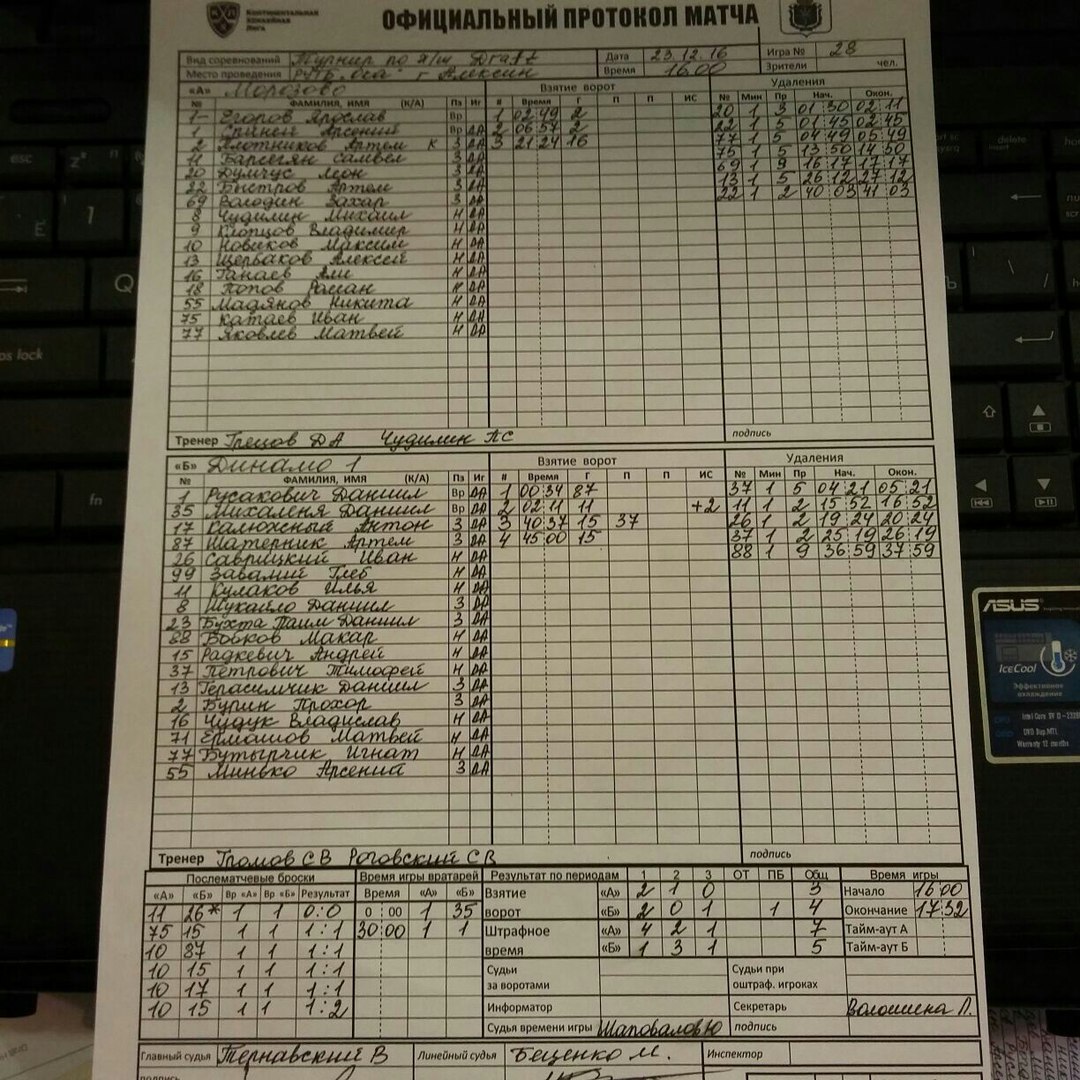 Континентальная
хоккейная
Лига
ОФИЦИАЛЬНЫЙ ПРОТОКОЛ МАТЧА
Вид соревнований Турнир по х/ш Дата 23.12.16 Игра № 28
Место проведения г Алексин Время 16.00 Зрители чел.
«А» Морозово Взятие ворот Удаления
№ ФАМИЛИЯ, ИМЯ (К/А) Пз Иг # Время Г П П ИС № Мин Пр Нач. Окон.
Егоров Ярослав Вр 1 02 49 2 20 1 3 01 30 02 11
1 Арсений Вр ДА 2 06 57 2 22 1 5 01 45 02 45
2 Плотников Артем К З ДА 3 21 24 16 77 1 5 04 49 05 49
11 Барсегян Самвел З ДА 75 1 5 13 50 14 50
20 Думчус Леон З ДА 69 1 9 16 17 17 17
22 Быстров Артем З ДА 13 1 5 26 12 27 12
69 Володин Захар З ДА 22 1 2 40 03 41 03
8 Чудилин Михаил Н ДА
9 Клопцов Владимир Н ДА
10 Новиков Максим Н ДА
13 Щербаков Алексей Н ДА
16 Танаев Али Н ДА
18 Попов Роман Н ДА
55 Мадянов Никита Н ДА
75 Катаев Иван Н ДА
77 Яковлев Матвей Н ДА
Тренер Грецов ДА Чудилин ПС подпись
«Б» Динамо 1 Взятие ворот Удаления
№ ФАМИЛИЯ, ИМЯ (К/А) Пз Иг # Время Г П П ИС № Мин Пр Нач. Окон.
1 Русакович Даниил Вр ДА 1 00 34 87 37 1 5 04 21 05 21
35 Михаленя Даниил Вр ДА 2 02 11 11 +2 11 1 2 15 52 16 52
17 Салюжный Антон З ДА 3 40 37 15 37 26 1 2 19 24 20 24
87 Шатерник Артем З ДА 4 45 00 15 37 1 2 25 19 26 19
26 Саврицкий Иван Н ДА 88 1 9 36 59 37 59
99 Завалий Глеб Н ДА
11 Кулаков Илья Н ДА
8 Шукайло Даниил З ДА
23 Бухта Паим Даниил З ДА
88 Бобков Макар Н ДА
15 Радкевич Андрей Н ДА
37 Петрович Тимофей Н ДА
13 Герасимчик Даниил З ДА
2 Бурин Прохор З ДА
16 Чудук Владислав Н ДА
71 Ермашов Матвей Н ДА
77 Бутырчик Игнат Н ДА
55 Минько Арсений З ДА
Тренер Громов С В Роговский С В подпись
Послематчевые броски Время игры вратарей Результат по периодам 1 2 3 ОТ ПБ Общ Время игры
«А» «Б» Вр «А» Вр «Б» Результат Время «А» «Б» Взятие «А» 2 1 0 3 Начало 16 00
11 26* 1 1 0:0 0:00 1 35 ворот «Б» 2 0 1 1 4 Окончание 17 32
75 15 1 1 1:1 30:00 1 1 Штрафное «А» 4 2 1 7 Тайм-аут А
10 87 1 1 1:1 время «Б» 1 3 1 5 Тайм-аут Б
10 15 1 1 1:1 Судьи за воротами Судьи при оштраф. игроках
10 17 1 1 1:1 Информатор Секретарь Волошена Л.
10 15 1 1 1:2 Судья времени игры Шаповалов Ю подпись
Главный судья Тернавский В Линейный судья Беценко М. Инспектор
подпись
esc
Q
caps lock
fn
delete
ASUS
IceCool
Эффективное
охлаждение
Warranty 12 months